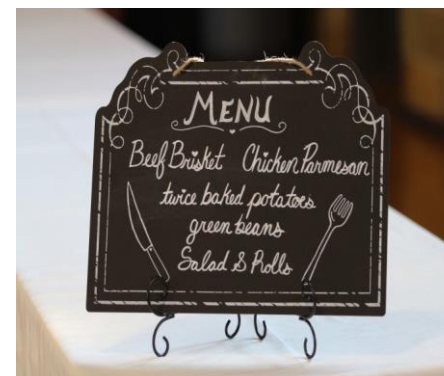 MENU
Beef Brisket Chicken Parmesan
twice baked potatoes
green beans
Salad & Rolls